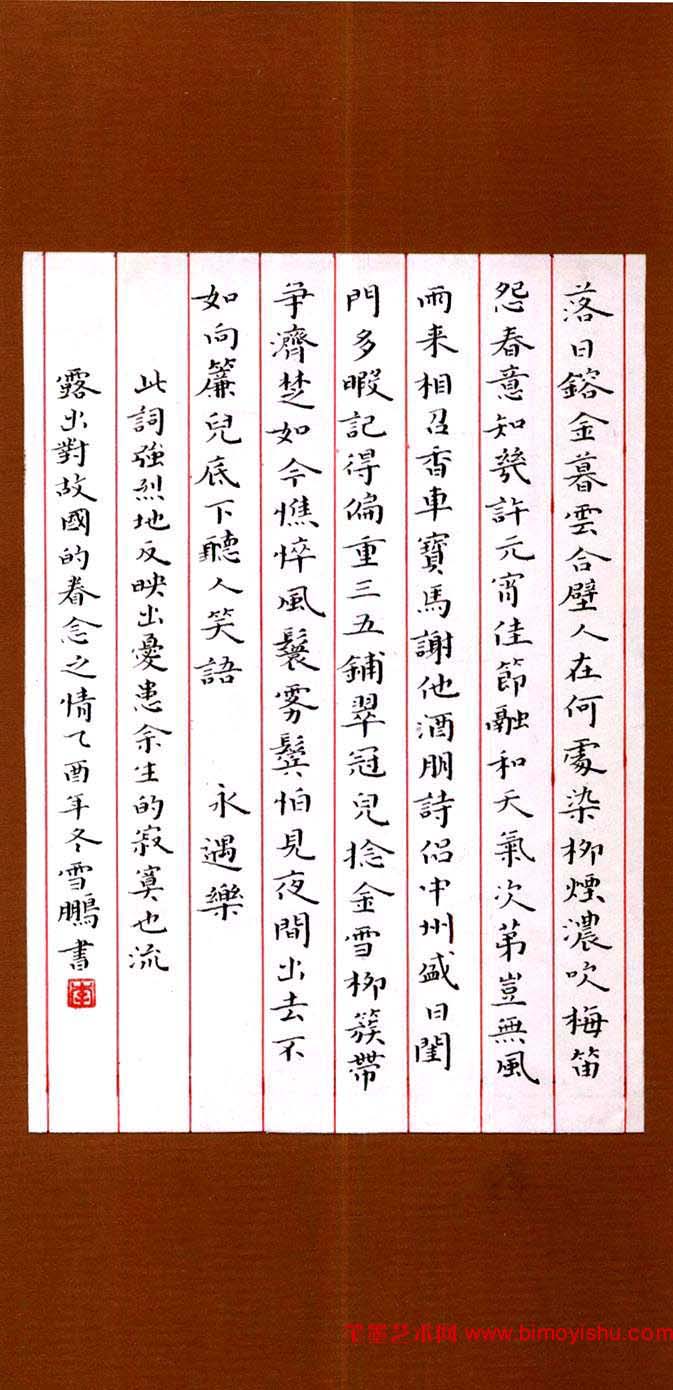 落日鎔金暮雲合壁人在何處染柳煙濃吹梅笛
怨春意知幾許元宵佳節融和天氣次苐豈無風
雨来相召香車寶馬謝他酒朋詩侣中州盛日閨
門多暇記得偏重三五鋪翠冠兒捻金雪柳簇帶
争濟楚如今憔悴風鬟雾鬢怕見夜間出去不
如向簾兒底下聽人笑語 永遇樂
此詞強烈地反映出憂患余生的寂寞也流
露出對故國的眷念之情乙酉年冬雪鵬書
李
笔墨艺术网 www.bimoyishu.com